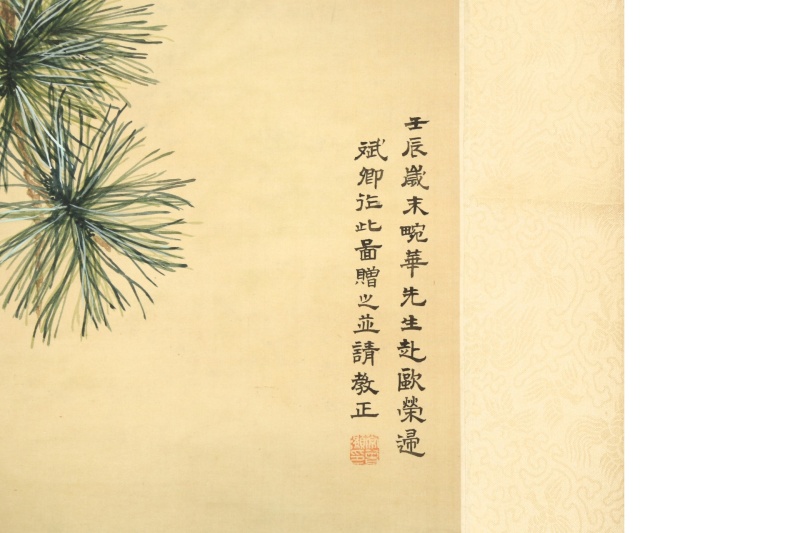 壬辰歲末畹華先生赴歐榮歸
斌卿作此圖贈之並請教正